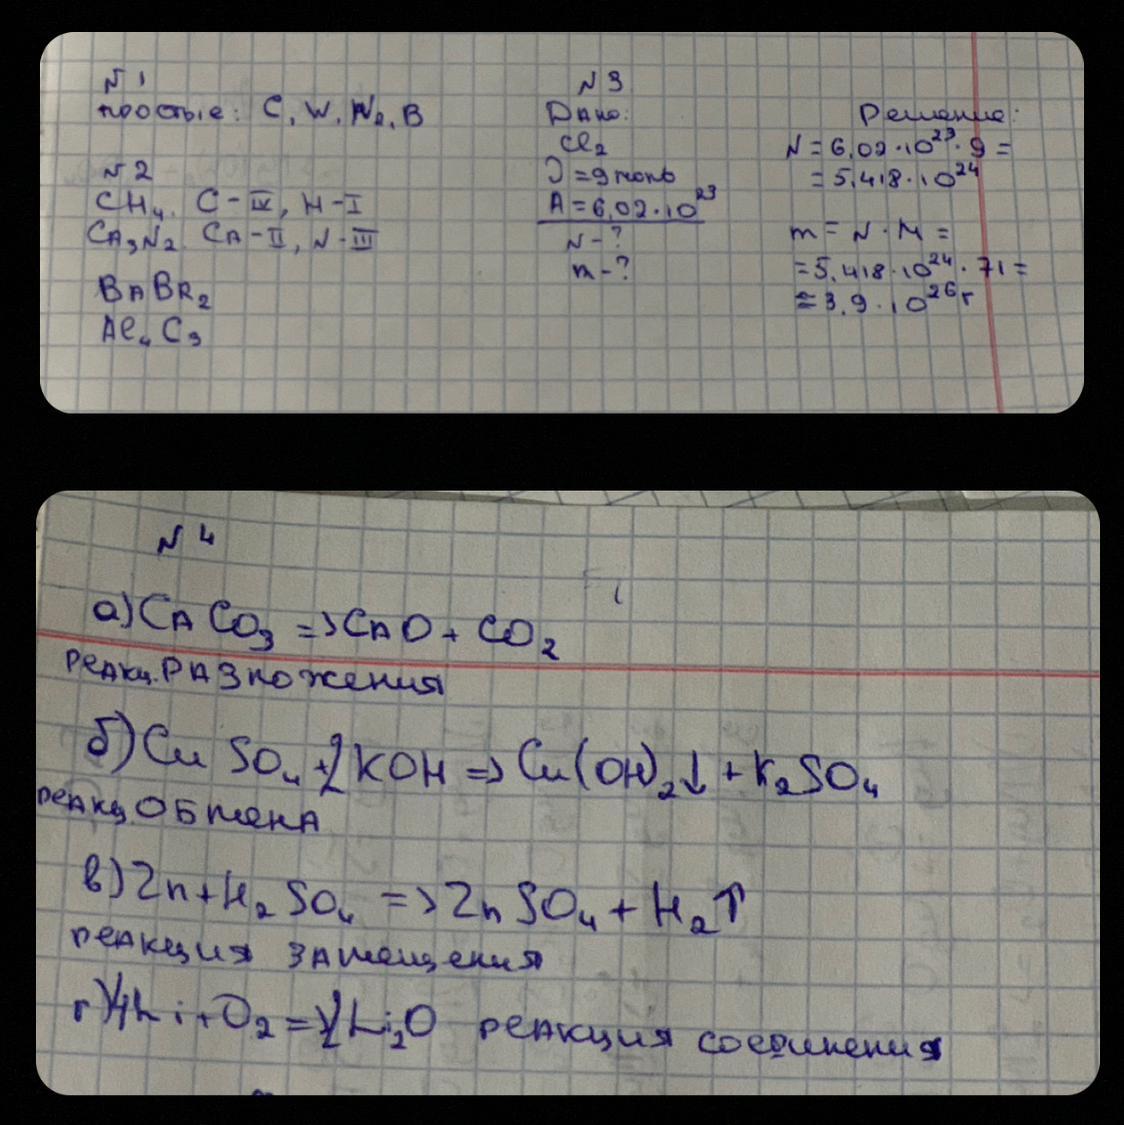 N 1
простые: C, W, N₂, B
N 2
CH₄. C-IV, H-I
CA₃N₂. CA-II, N-III
BABR₂
Al₄C₃
N 3
Дано:
Cl₂
ν=9 моль
A=6,02·10²³
N-?
m-?
Решение:
N=6,02·10²³·9=
=5,418·10²⁴
m=N·M=
=5,418·10²⁴·71=
=3,9·10²⁶г
N 4
а) CACO₃ => CAO + CO₂
реакц. РАЗЛОЖЕНИЯ
б) CuSO₄+2KOH => Cu(OH)₂↓ + K₂SO₄
реакц ОБМЕНА
в) Zn+H₂SO₄ => ZnSO₄ + H₂↑
реакция замещения
г) 4Li+O₂=>2Li₂O реакция соединения